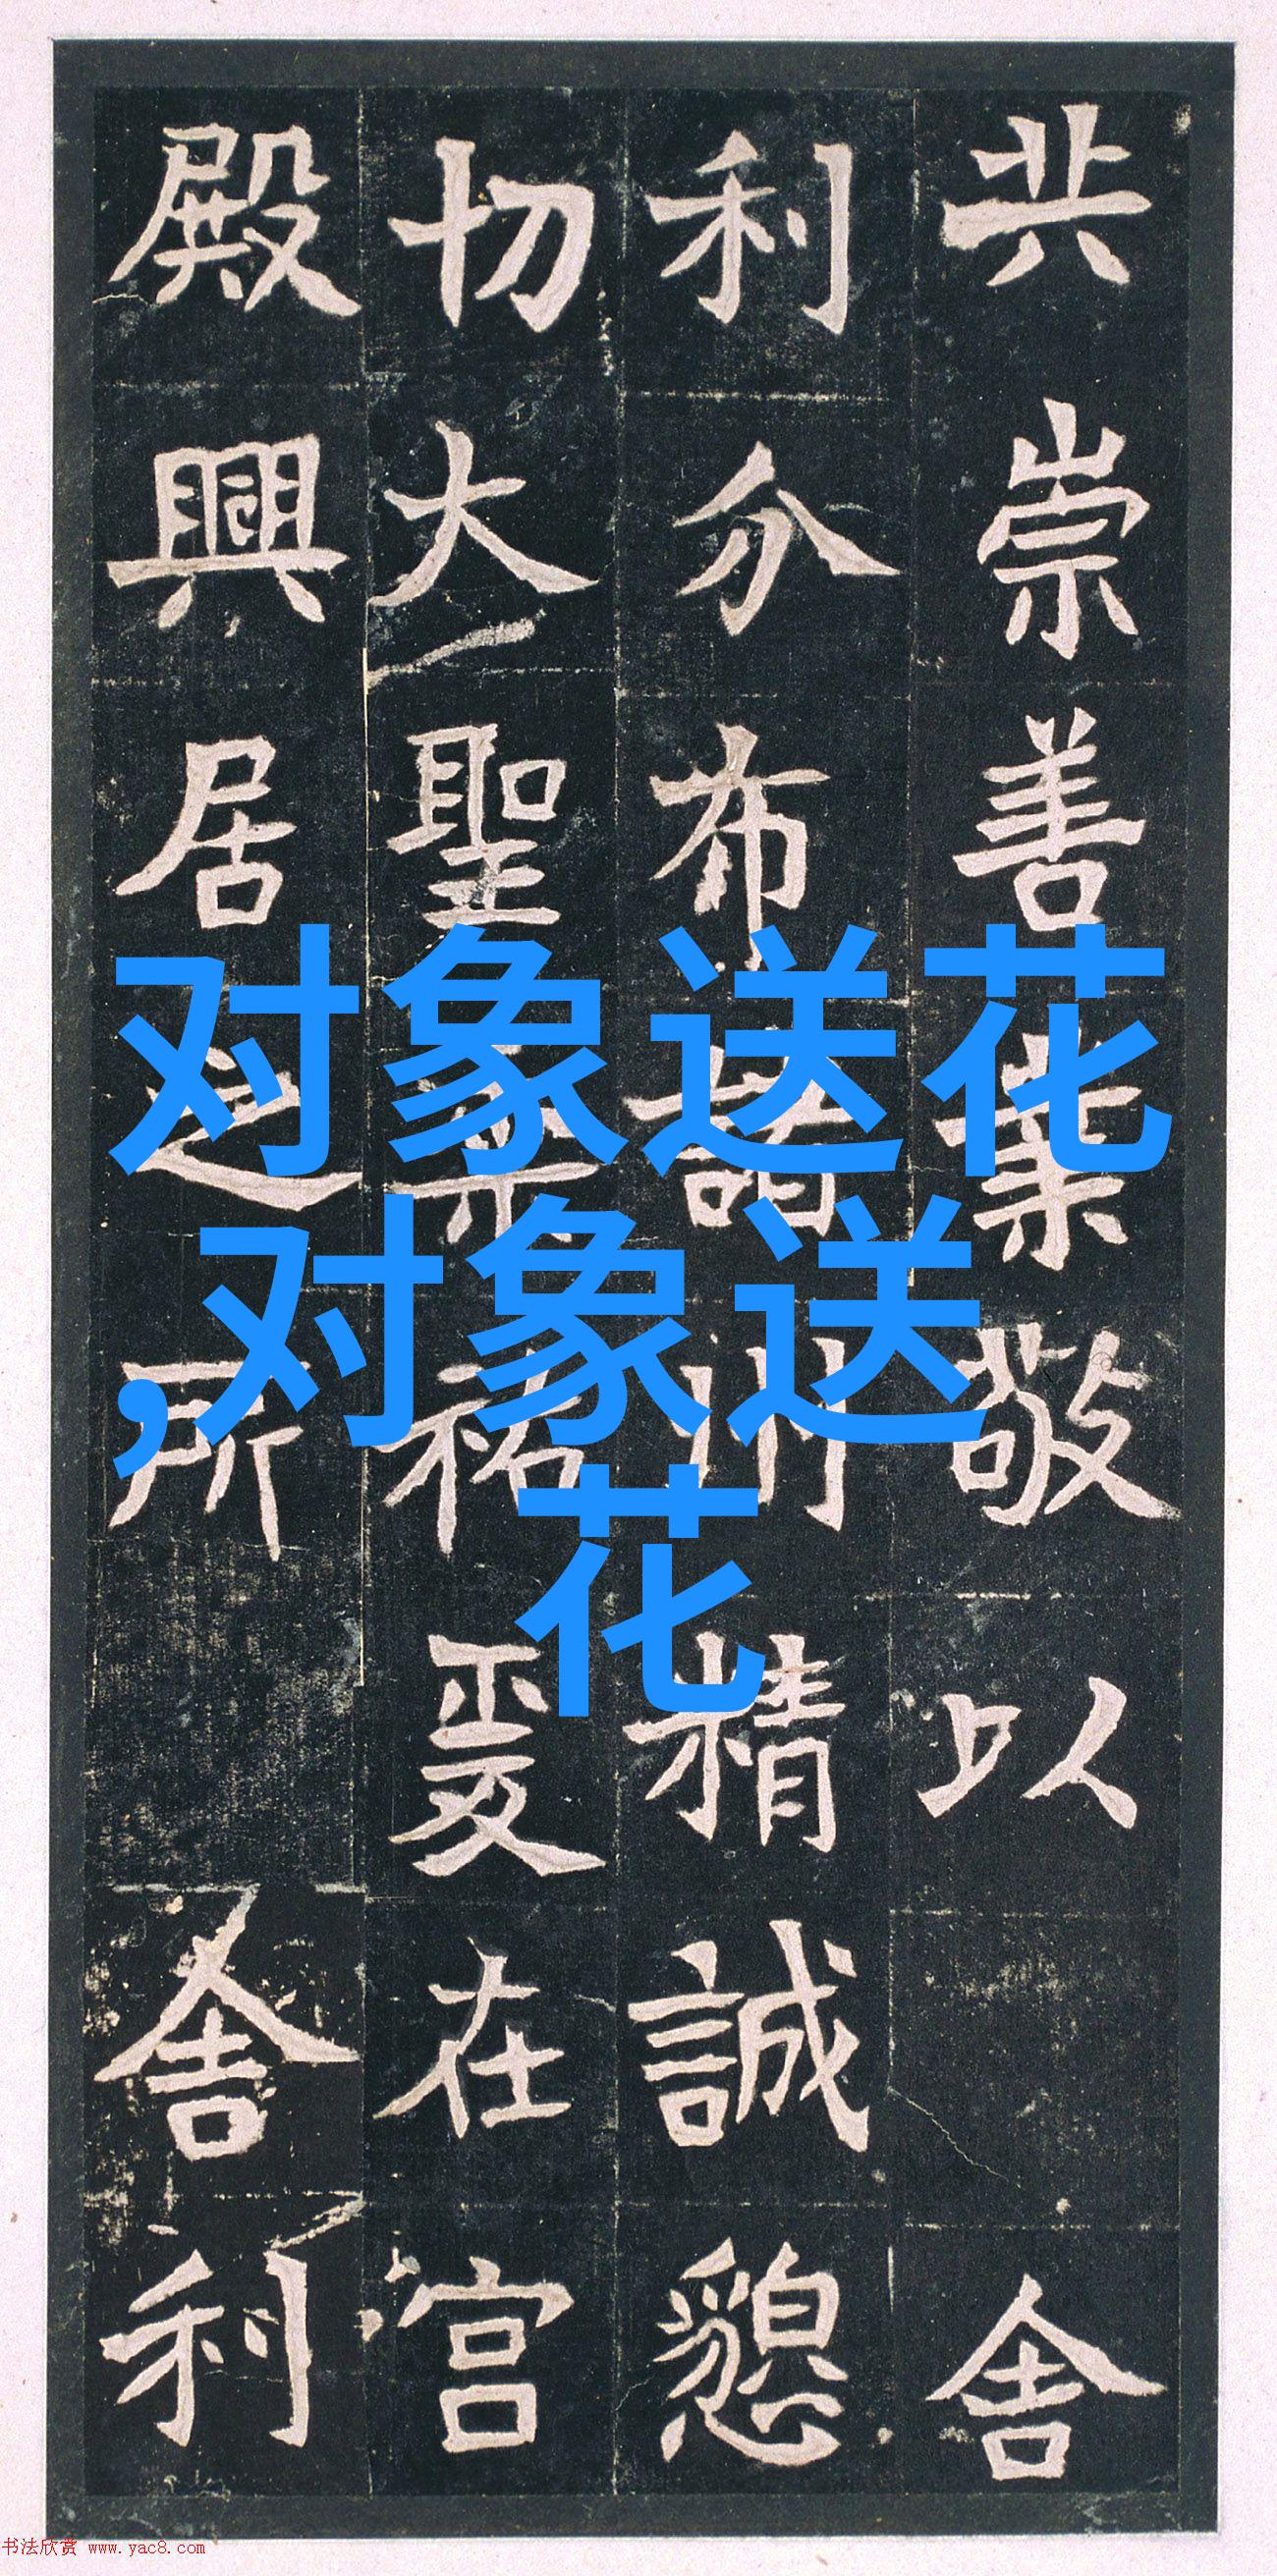 共崇善業敬以舍
利分布諸州精誠懇
切大聖祐爰在宮
殿興居之所舍利
对象送花
,对象送
花
书法欣赏 www.yac8.com